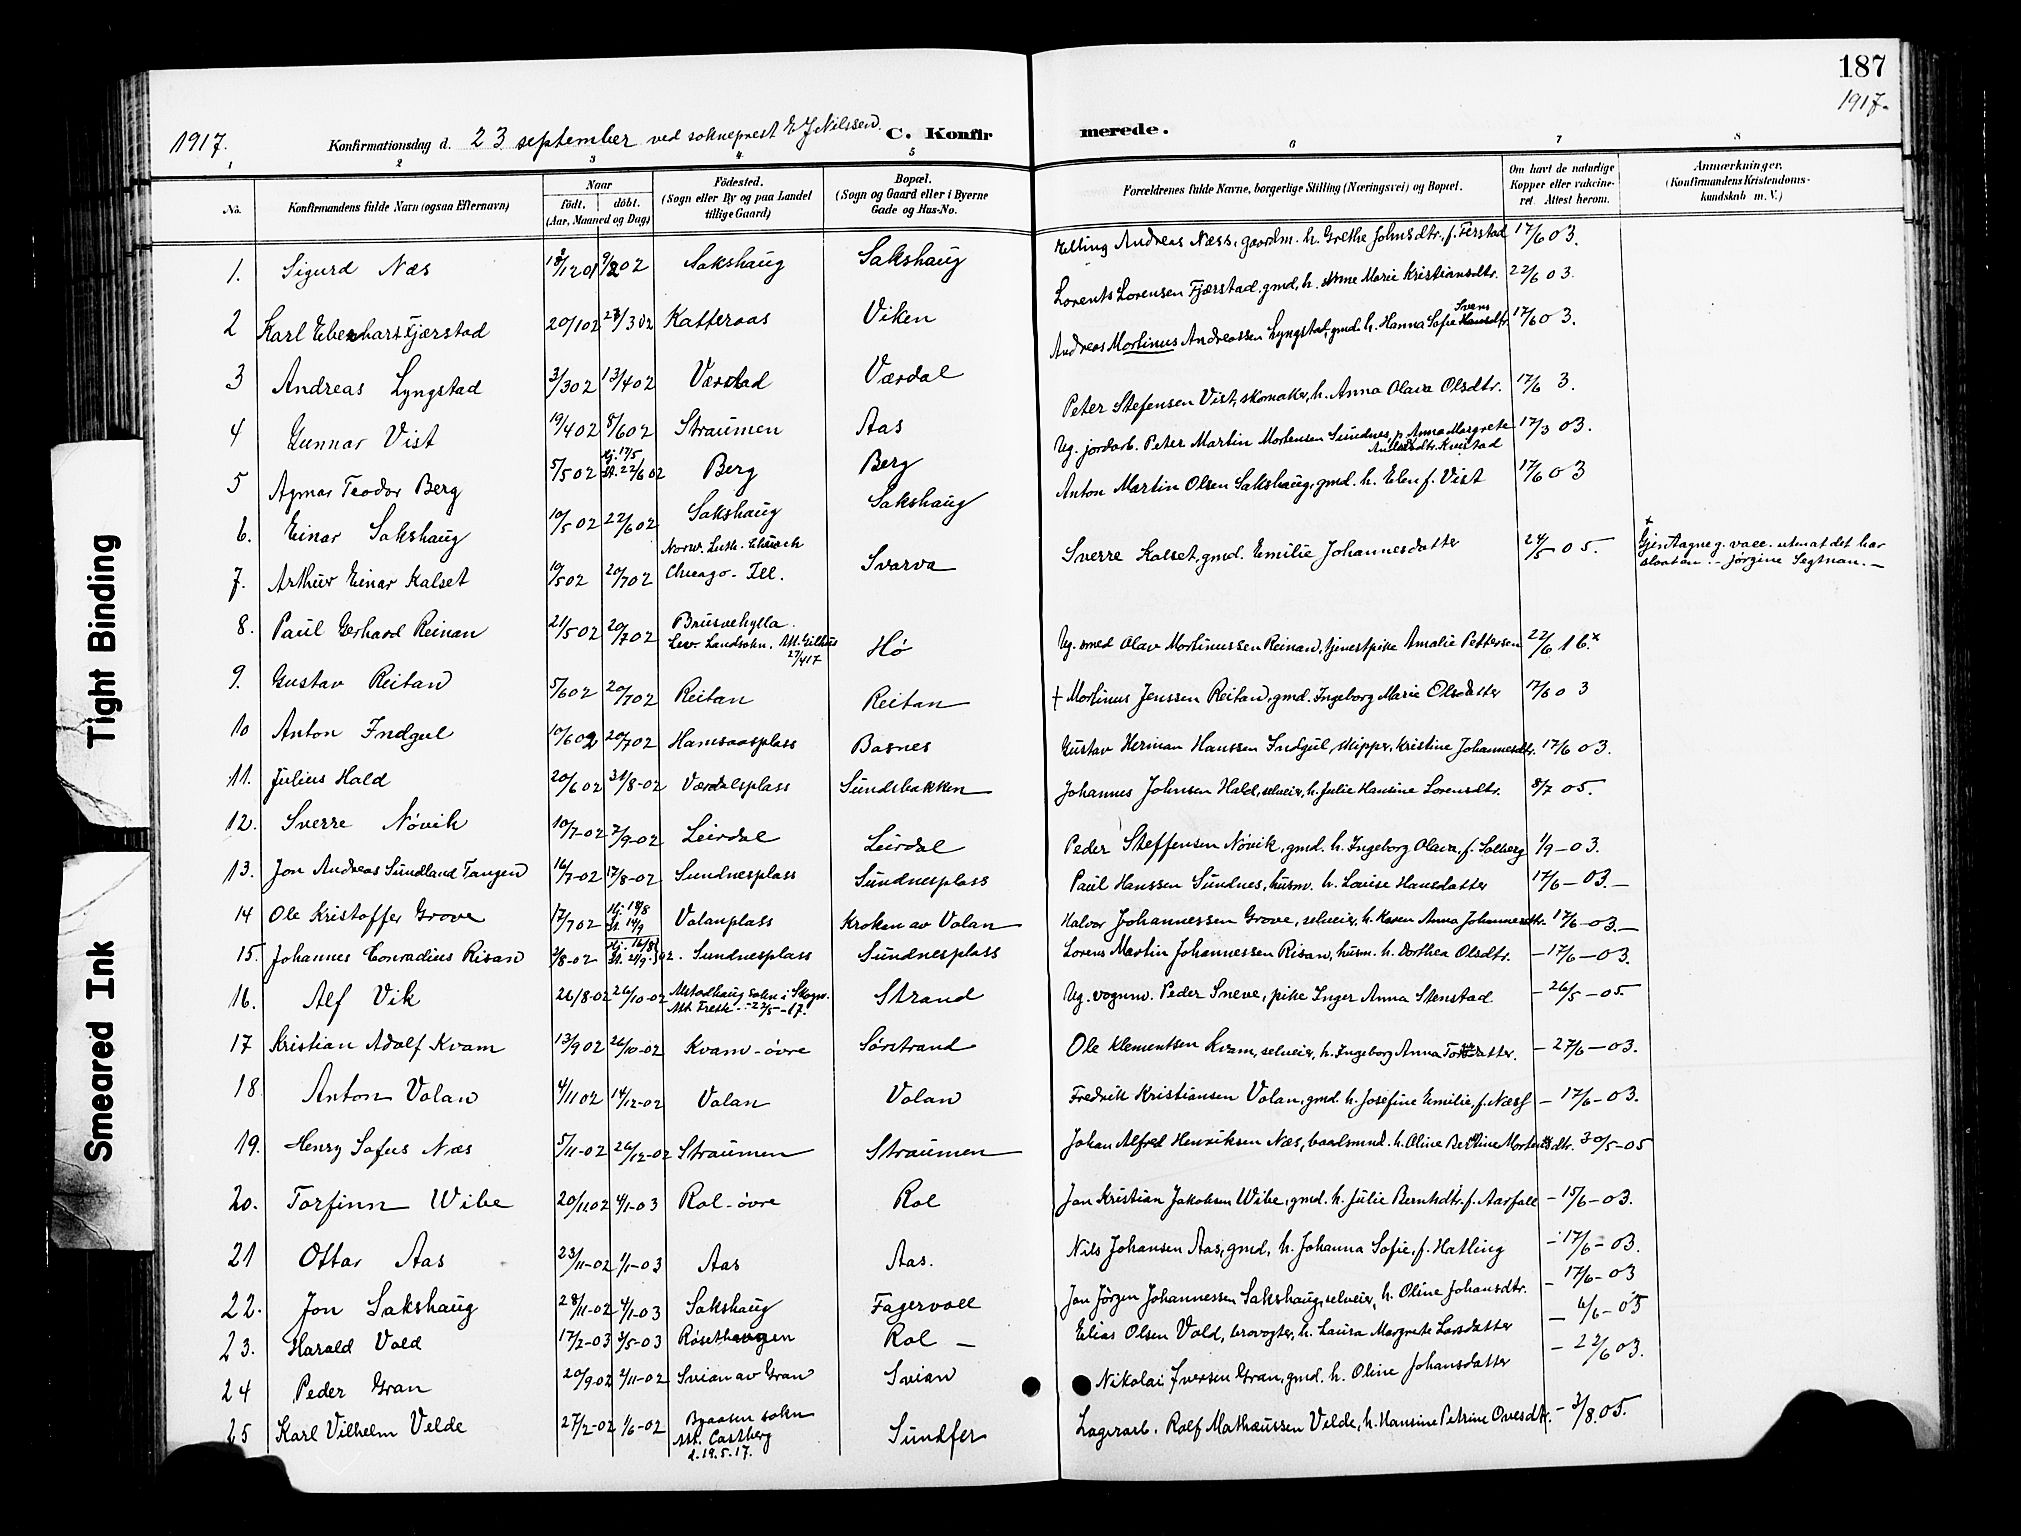 187
1917.
1917. Konfirmationsdag d. 23 september ved sokneprest E J Nilssen. C. Konfirmerede.
1 2 3 4 5 6 7 8
No. Konfirmandens fulde Navn (ogsaa Efternavn) Naar födt. döbt. (Aar, Maaned og Dag) Födested. (Sogn eller By og paa Landet tillige Gaard) Bopæl. (Sogn og Gaard eller i Byerne Gade og Hus-No. Forældrenes fulde Navne, borgerlige Stilling (Næringsvei) og Bopæl. Om havt de naturlige Kopper eller vakcineret. Attest herom. Anmærkninger. (Konfirmandens Kristendomskundskab m. V.)
1. Sigurd Næs 18/12 01 9/2 02 Sakshaug Sakshaug Elling Andreas Næss, gaardm. h. Grethe Johnsdtr. f. Ferstad 17/6 03.
2 Karl Eberhart Fjærstad 20/1 02 23/3 02 Katteraas Viken Lorents Lorensen Fjærstad, gmd, h. Anne Marie Kristiansdtr. 22/6 03.
3 Andreas Lyngstad 3/3 02 13/4 02 Værdal Værdal Andreas Mortinus Andreassen Lyngstad, gmd. h. Hanna Sofie Svensdtr. 17/6 03.
4 Gunnar Vist 19/4 02 8/6 02 Straumen Aas Peter Stefensen Vist, skomaker, h. Anna Olava Olsdtr. 17/6 3.
5 Agmar Teodor Berg 5/5 02 Hj. 17/5 St. 22/6 02 Berg Berg Ug. jordarb. Peter Martin Mortensen Sundnes, p. Anna Margrete Andersdtr. Kvistad 17/3 03.
6. Einar Sakshaug 10/5 02 22/6 02 Sakshaug Sakshaug Anton Martin Olsen Sakshaug, gmd. h. Elen f. Vist 17/6 03
7. Arthur Einar Kalset 19/5 02 20/7 02 Norw. Luth. Church Chicago - Ill. Svarva Sverre Kalset, gmd. Emilie Johannesdatter 24/5 05.
x Gjentagne g. vacc. uten at det har slaat an. - Jørgine Segtnan. -
8. Paul Gerhard Reinan 21/5 02 20/7 02 Brusvehylla. Lev. Landsokn. Att. Gilhus 27/4 17 Hø Ug. smed Olav Mortinussen Reinan, tjenestpike Amalie Pettersen 22/6 16.x
9. Gustav Reitan 5/6 02 20/7 02 Reitan Reitan + Mortinus Jenssen Reitan, gmd. Ingeborg Marie Olsdatter 17/6 03
10 Anton Indgul 10/6 02 20/7 02 Hamsaasplass Basnes Gustav Herman Hanssen Indgul, skipper, Kristine Johannesdtr. 17/6 03.
11. Julius Hald 20/6 02 31/8-02 Værdalsplass Sundsbakken Johannes Johnsen Hald, selveier, h. Julie Hansine Lorensdtr. 8/7 05.
12. Sverre Nøvik 10/7-02 7/9-02 Leirdal Leirdal Peder Steffensen Nøvik, gmd. h. Ingeborg Olava, f. Salberg 1/9-03.
13. Jon Andreas Sundland Tangen 16/7-02 17/8-02 Sundnesplass Sundnesplass Paul Hanssen Sundnes, husm. h. Louise Hansdatter 17/6-03.-
14 Ole Kristoffer Grove 17/7 02 Hj. 18/8 St. 14/9 Volanplass Kroken av Volan Halvor Johannessen Grove, selveier, h. Karen Anna Johannesdtr. 17/6-03.-
15. Johannes Conradius Risan 3/8-02 Hj. 16/8 St. 21/9 02. Sundnesplass Sundnesplass Lorens Martin Johannessen Risan, husm. h. Dorthea Olsdtr. -17/6-03.
16. Alf Vik 26/8-02 26/10-02 Alstadhaug sokn i Skogn. Att. Fretk - 22/5-17. Strand Ug. vognm. Peder Sneve, pike Inger Anna Stenstad - 26/5-05.
17 Kristian Adolf Kvam 13/9 02 26/10-02 Kvam-övre Sørstrand Ole Klementsen Kvam, selveier, h. Ingeborg Anna Torsdatter. - 27/6-03.
18. Anton Volan 4/11 02 14/12-02 Volan Volan Fredrik Kristiansen Volan, gmd. h. Josefine Emilie, f. Næss - 17/6-03.
19. Henry Sofus Næs 5/11-02 26/12-02 Straumen Straumen Johan Alfred Henriksen Næs, baatsmnd. h. Oline Bertine Mortensdtr. 30/5-05
20. Torfinn Wibe 20/11 02 4/1-03 Rol-övre Rol Jon Kristian Jakobsen Wibe, gmd. h. Julie Berntsdtr. f. Aarfall - 15/6-03.
21 Ottar Aas 23/11-02 1/1-03 Aas Aas. Nils Johansen Aas, gmd, h. Johanna Sofie, f. Hatling - 17/6-03.
22. Jon Sakshaug 28/11-02 4/1-03 Sakshaug Fagervoll Jon Jörgen Johannessen Sakshaug, selveier, h. Oline Johansdtr. - 17/6-03
23. Harald Vold 17/2-03 3/5-03 Røsethaugen Rol - Elias Olsen Vold, brovogter, h. Laura Margrete Larsdatter - 6/6-05
24 Peder Gran 20/9 02 2/11-02 Svian av Gran Svian Nikolai Iversen Gran, gmd. h. Oline Johansdatter - 22/6 03.
25 Karl Vilhelm Velde 27/2-02 1/6-02 Beitstaden sokn Att. Castberg d. 19.5.17. Sundfer Lagerarb. Rolf Mathæussen Velde, h. Hansine Petrine Ovesdtr. - 3/8.05.
Tight Binding
Smeared Ink